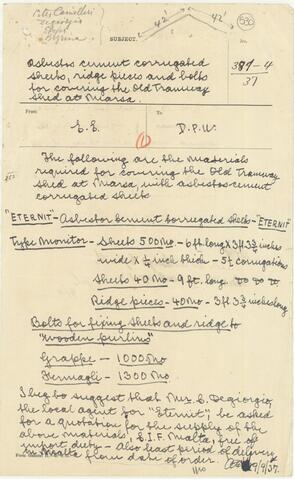 42' 42'
530
SUBJECT.
Asbestos cement corrugated
sheets, ridge pieces and bolts
for covering the Old Tramway
Shed at Marsa.
387-4
37
From
To
E.E.
D.P.W.
(1)
The following are the materials
required for covering the Old Tramway
shed at Marsa, with asbestos cement
corrugated sheets
"ETERNIT" - Asbestos Cement Corrugated Sheets - "ETERNIT"
Type Monitor - Sheets 500 No - 6 ft long x 3 ft 3¾ inches
wide x ¼ inch thick - 5½ corrugations
Sheets 40 No - 9 ft. long do do do
Ridge pieces - 40 No - 3 ft 3¾ inches long
Bolts for fixing sheets and ridge to
"wooden purlins"
Grappe - 1000 No
Fermagli - 1300 No.
I beg to suggest that Mr. C. Degiorgio,
the local agent for "Eternit", be asked
for a quotation for the supply of the
above materials, C.I.F. Malta, free of
import duty - Also least period of delivery
in Malta from date of order.
9/9/37.